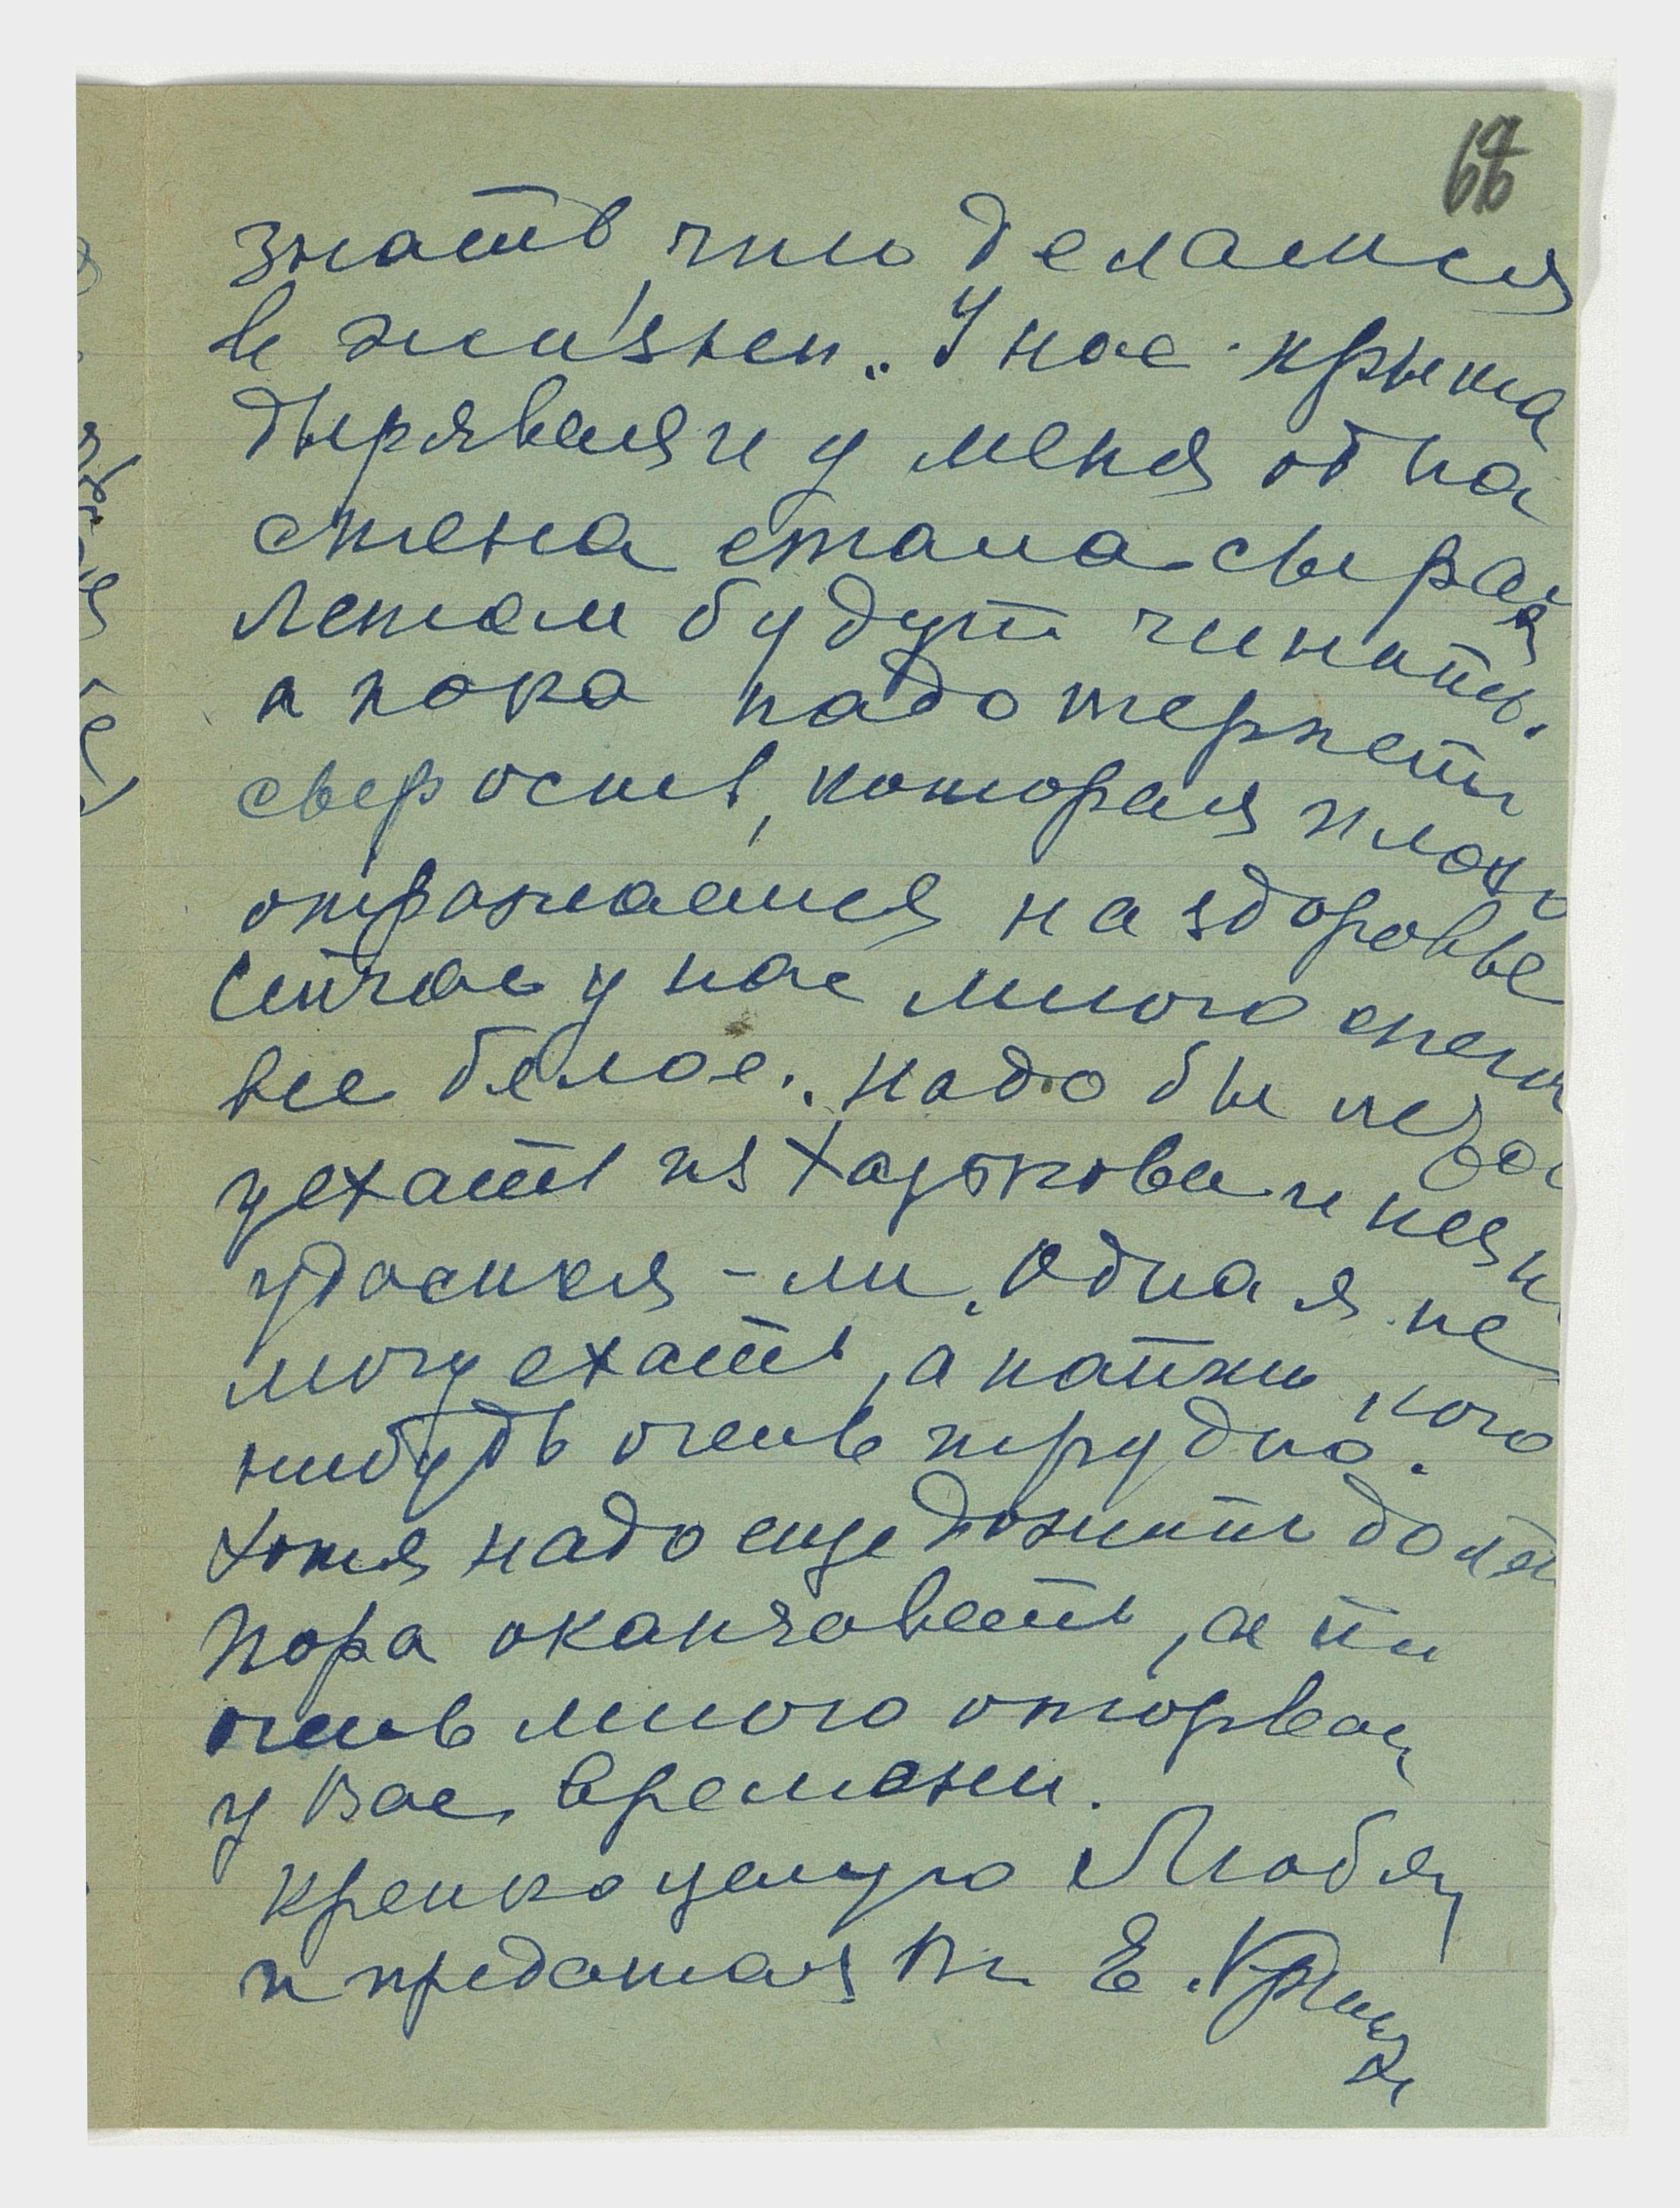 знать, что делается
в жизни. У нас крыша
дырявая и у меня одна
стена стала сырая
Летом будут чинить.
а пока надо терпеть
сырость, которая плохо
отражается на здоровье
Сейчас у нас много снега
все белое. Надо бы
уехать из Харькова и
удастся - ли. Одна я не
могу ехать, а найти кого
нибудь очень трудно.
Хотя надо еще дожить до
Пора оканчивать, а то
очень много оторвет
у Вас времени.
Крепко целую Любящ
и преданная Вам Е.